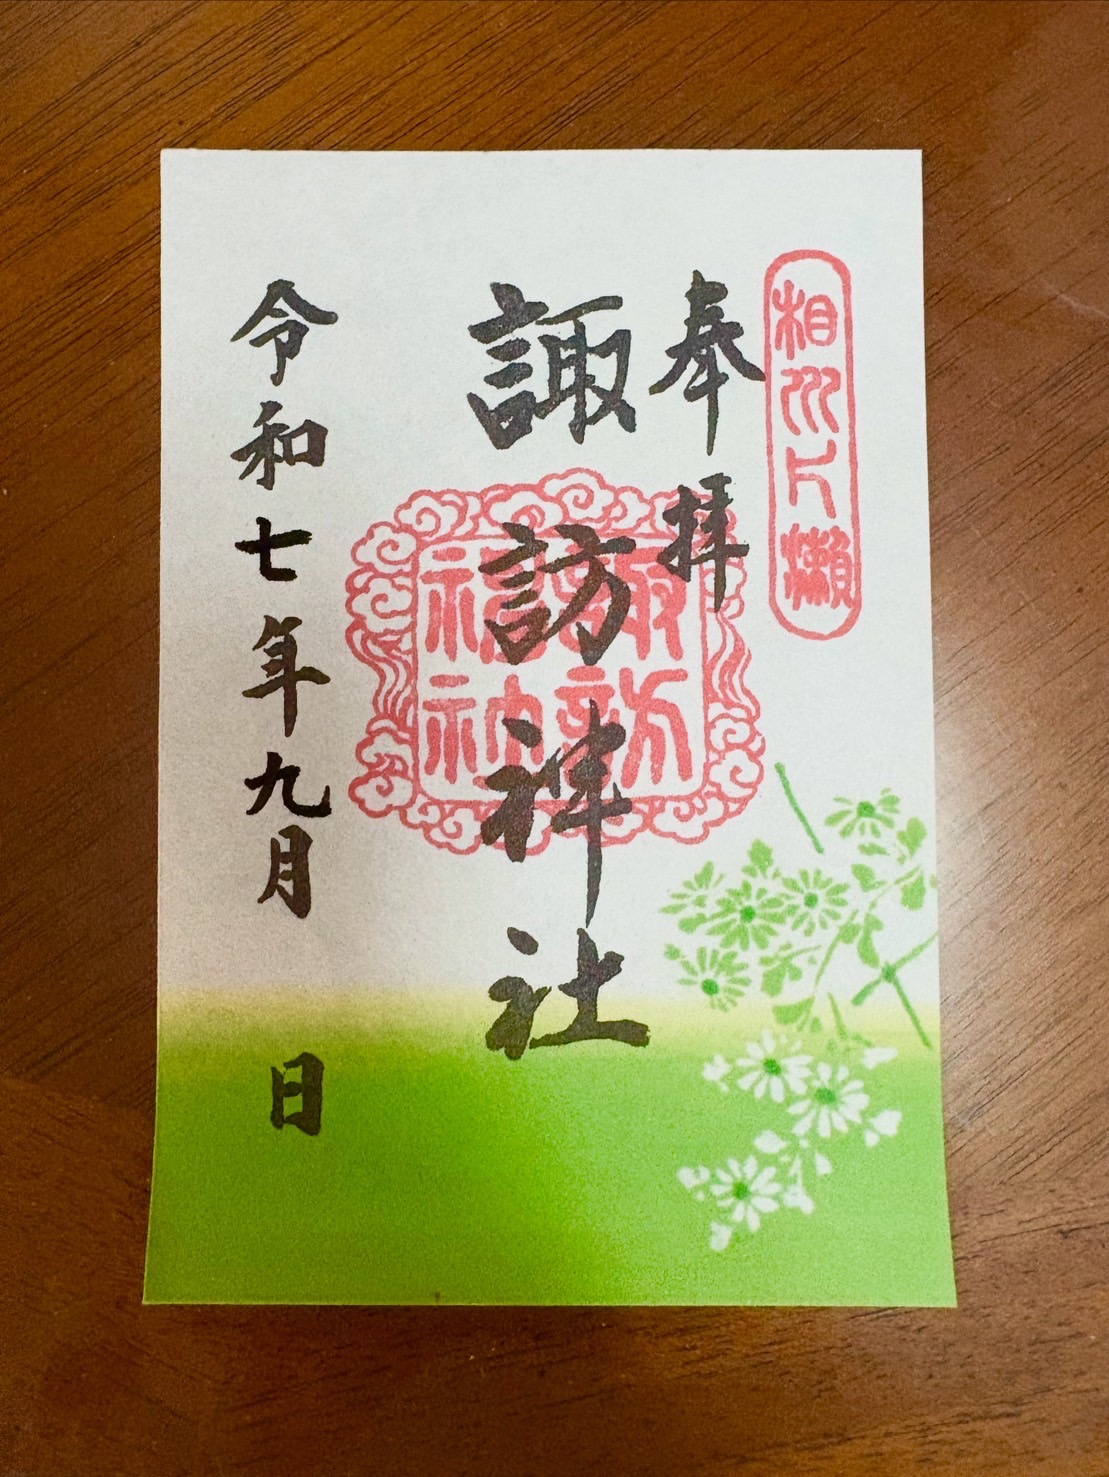 相州片瀬
奉拝
諏訪神社
諏訪
神社
令和七年九月 日